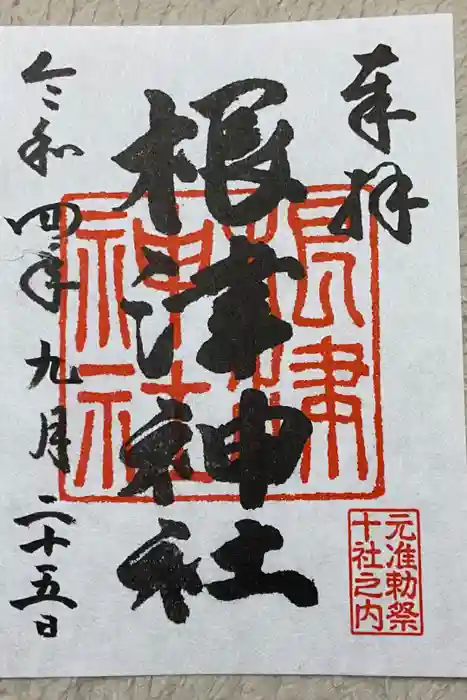 奉拝
根津神社
令和四年九月二十五日
根津神社
元准勅祭
十社之内